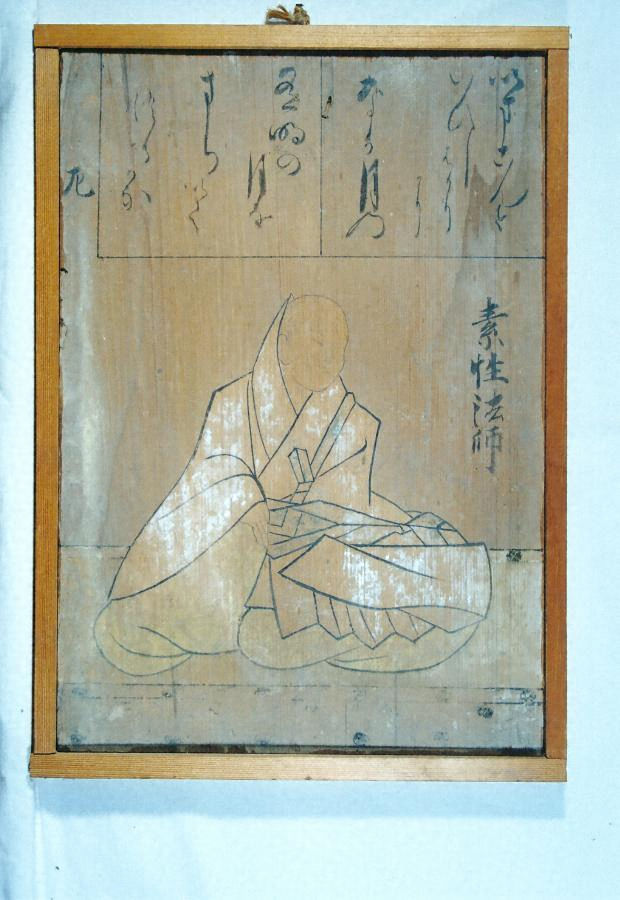 いまこんと
いひし
はかり
に
なか月の
有明の
月を
まち
いて
つるか
素性法師